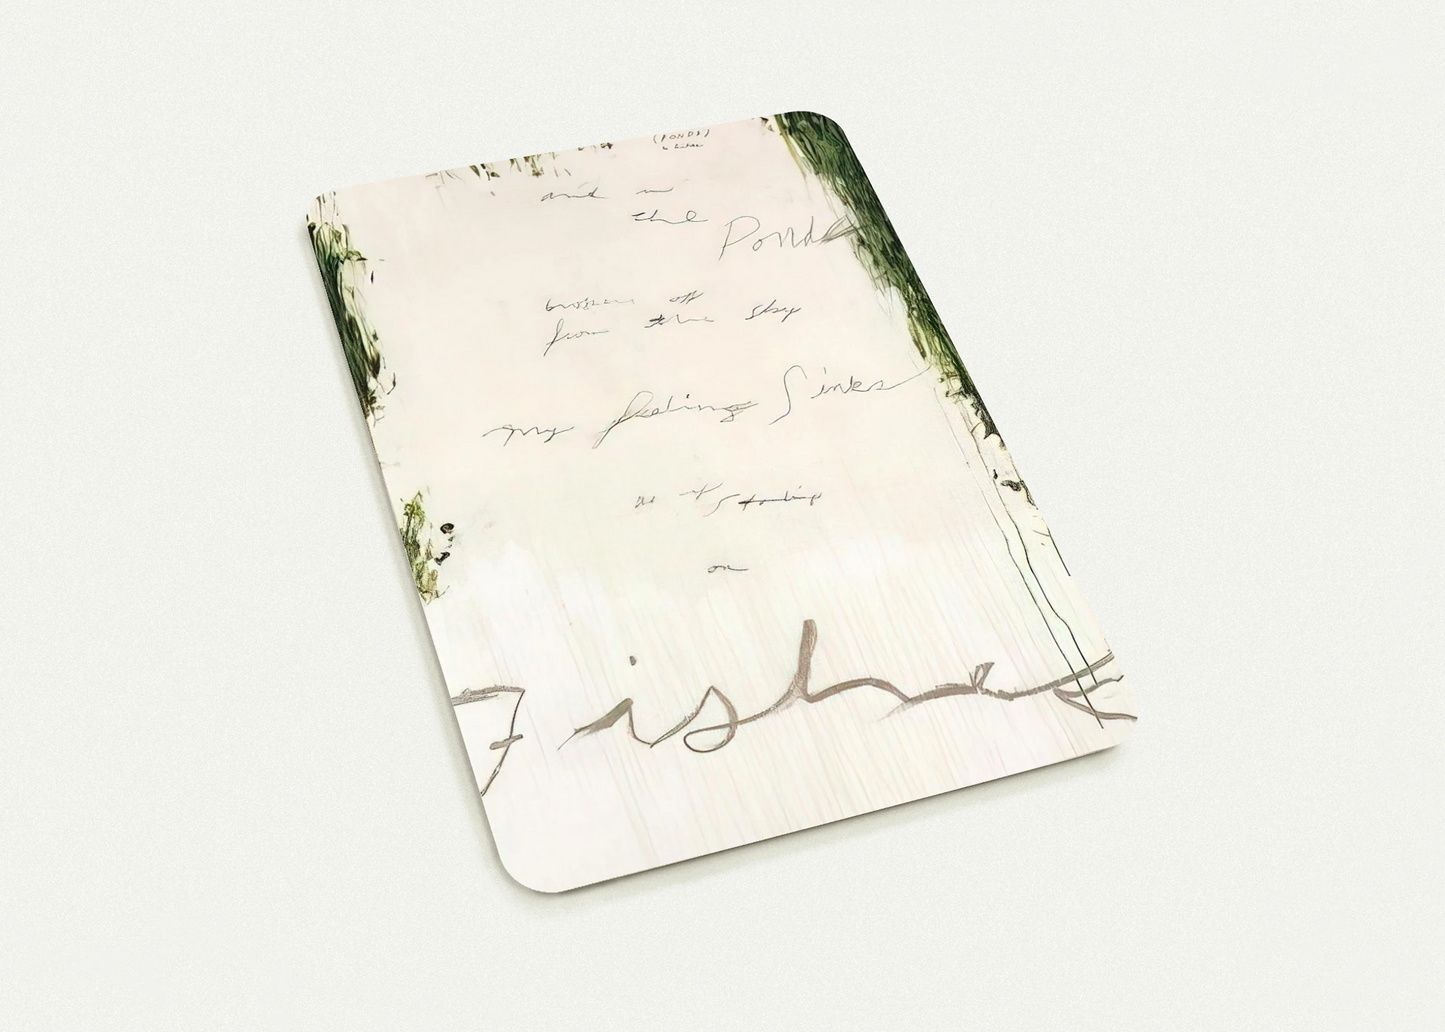 (PONDS)
and in
the Ponds
broken off
from the sky
my feeling Sinks
as if standing
on
Fishes